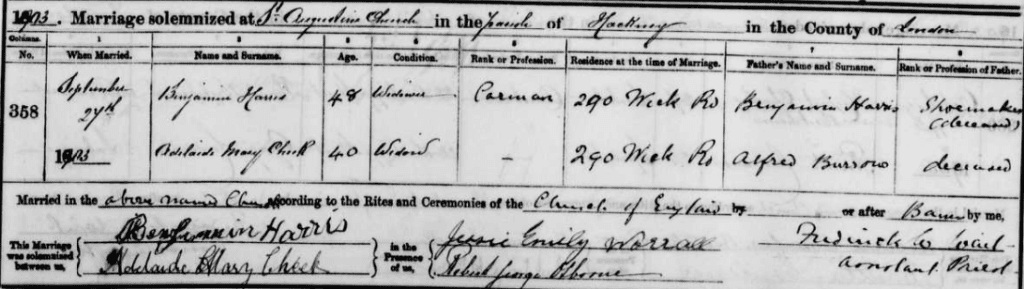 1903. Marriage solemnized at St. Augustine Church in the Parish of Hackney in the County of London
Columns. 1 2 3 4 5 6 7 8
No. When Married. Name and Surname. Age. Condition. Rank or Profession. Residence at the time of Marriage. Father's Name and Surname. Rank or Profession of Father.
358 September 27th Benjamin Harris 48 Widower Carman 290 Wick Rd Benjamin Harris Shoemaker (deceased)
1903 Adelaide Mary Cheek 40 Widow – 290 Wick Rd Alfred Burrow deceased
Married in the above named Church according to the Rites and Ceremonies of the Church of England by or after Banns by me,
This Marriage was solemnized between us, Benjamin Harris in the Presence of us, Jessie Emily Worrall Fredrick
Adelaide Mary Cheek Robert George Osborne Assistant Priest